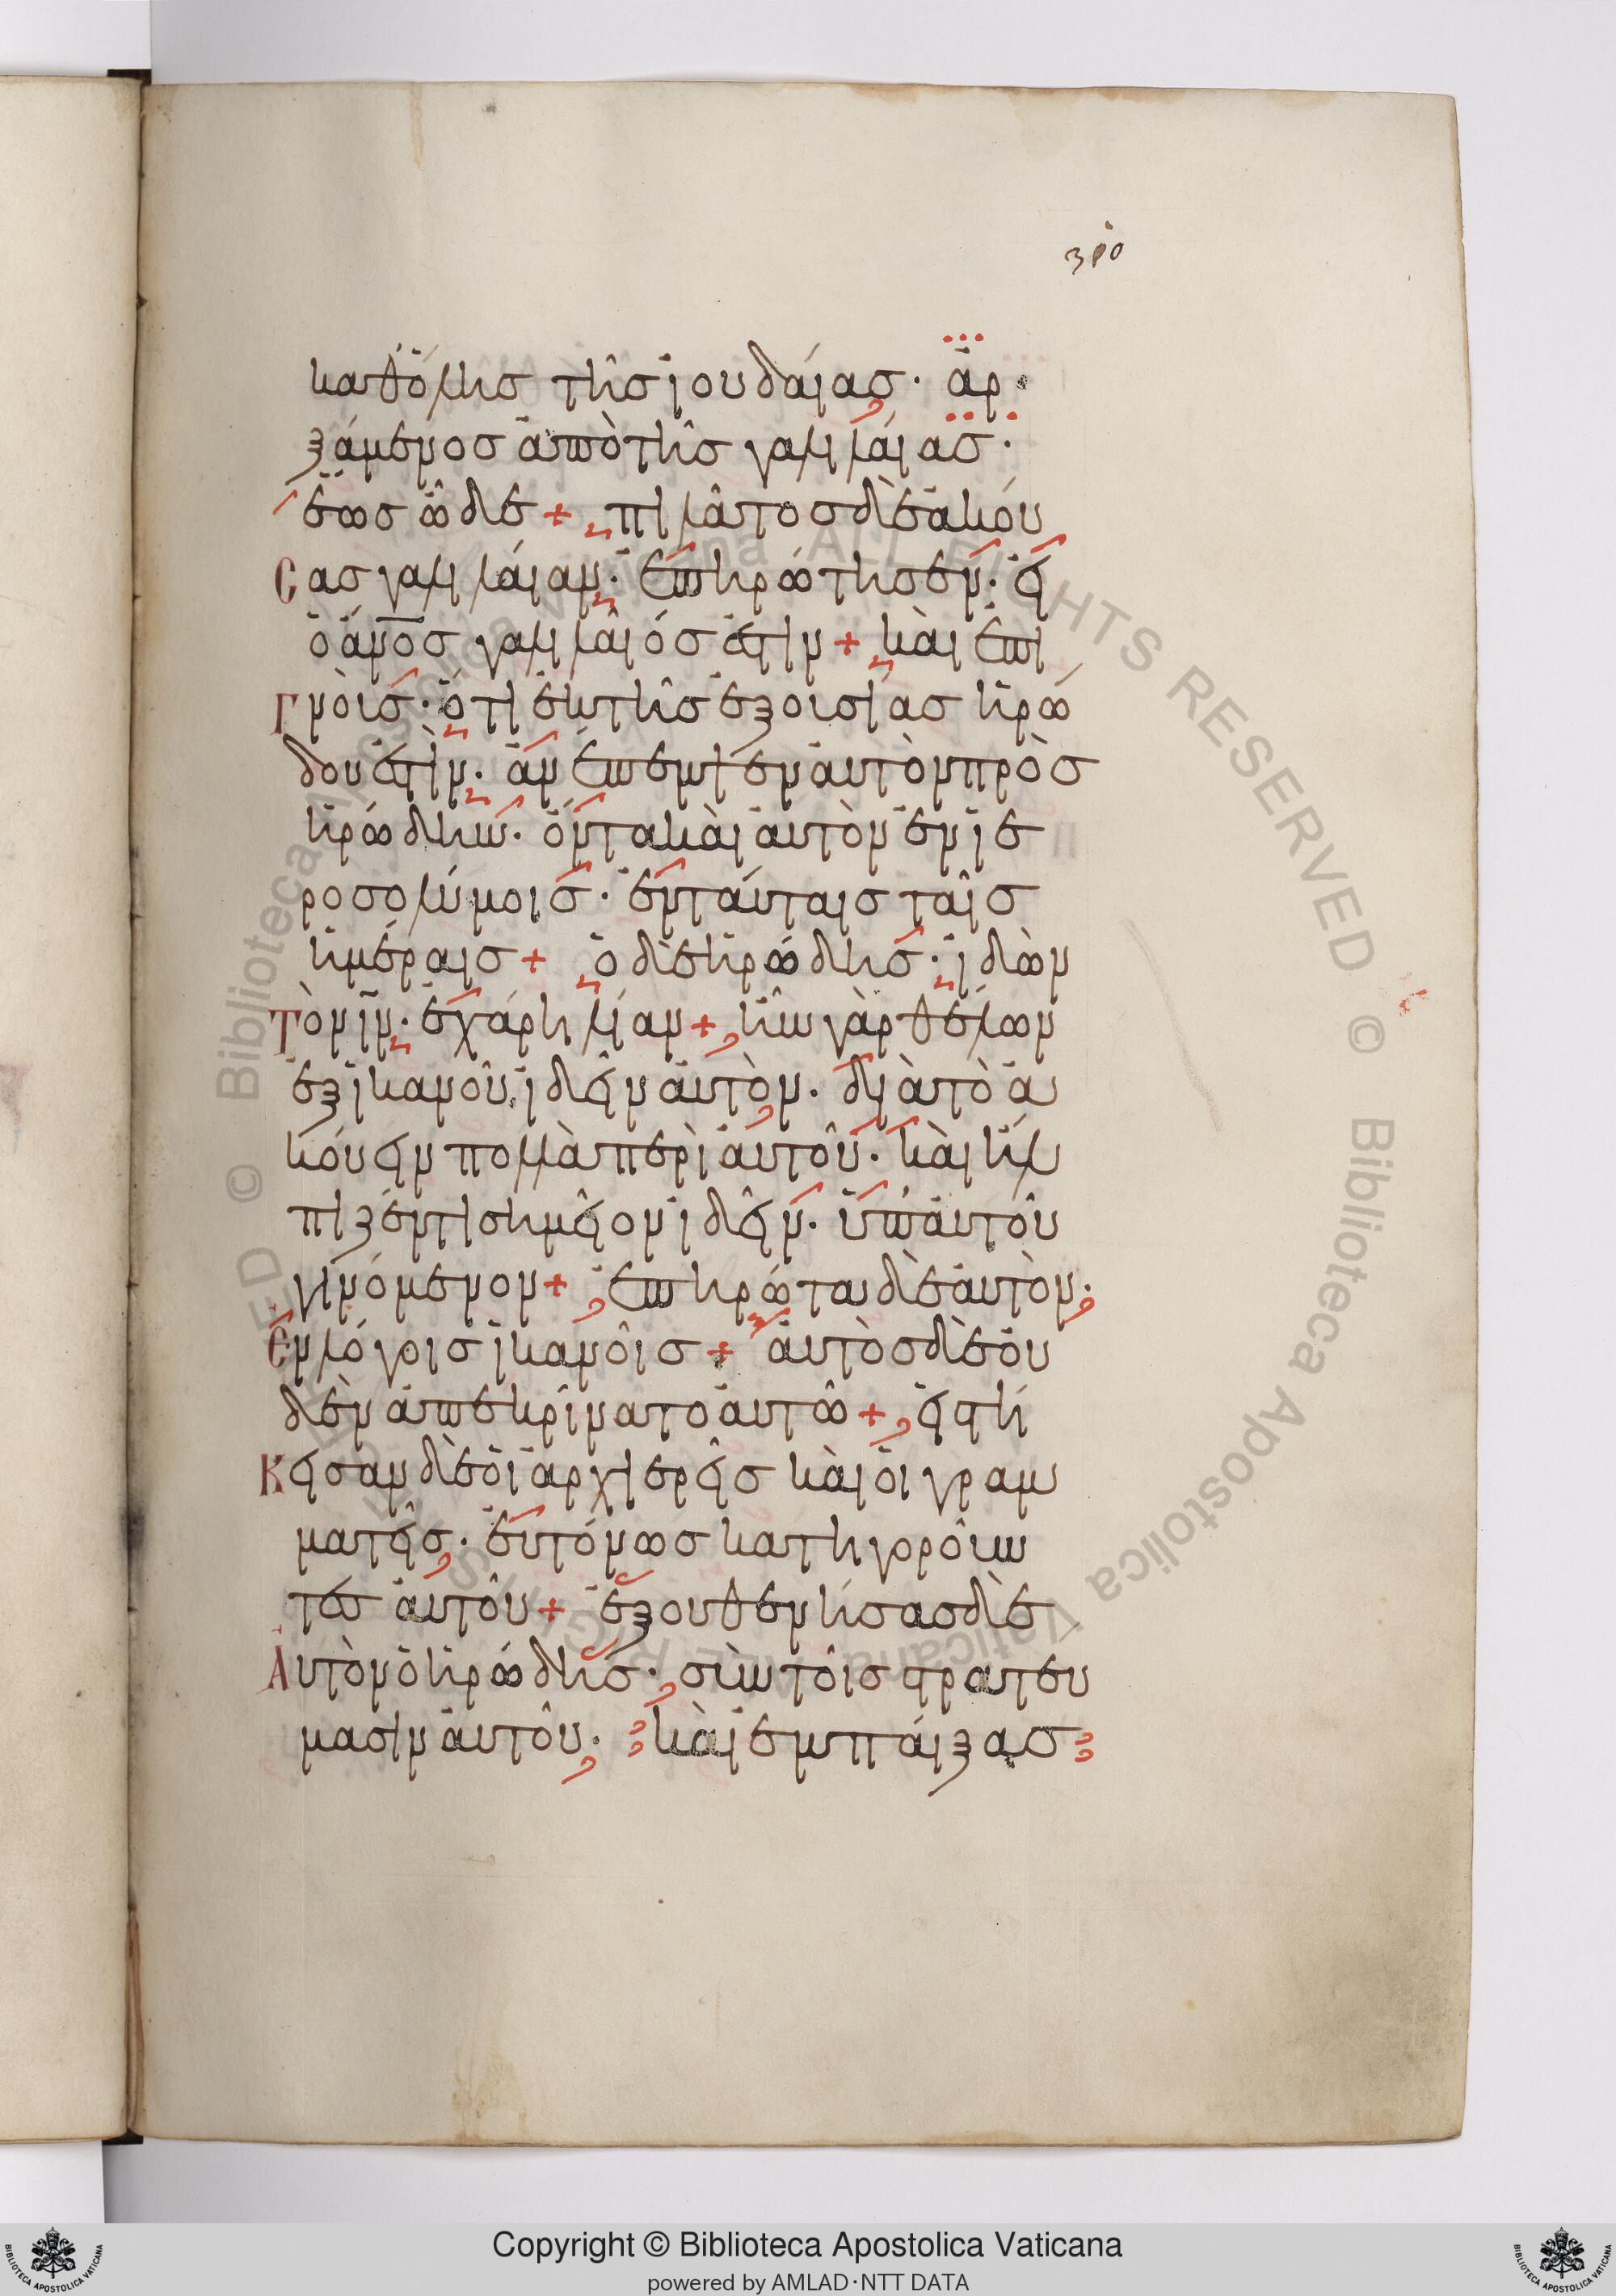 310
καθόλης τῆς ϊουδαίας· ἀρ·
ξάμενος ἀπὸ τῆς γαλιλαίας·
ἕως ὧδε + πιλᾶτος δὲ ἀκού
σας γαλιλαίαν· ἐπηρώτησεν· εἰ
ὁ ἀνος γαλιλαῖός ἐστιν + καὶ ἐπι
γνοὺς· ὅτι ἐκ τῆς ἐξουσίας ἡρώ
δου ἐστὶν· ἀνέπεμψεν αὐτὸν πρὸς
ἡρώδην· ὄντα καὶ αὐτὸν ἐν ἱε
ροσολύμοις· ἐν ταύταις ταῖς
ἡμέραις + ὁ δὲ ἡρώδης· ἰδὼν
τὸν ιν· ἐχάρη λίαν + ἦν γὰρ θέλων
ἐξ ικανοῦ ἰδεῖν αὐτὸν· διὰ τὸ ἀ
κούειν πολλὰ περὶ αὐτοῦ· καὶ ἤλ
πιζέν τι σημεῖον ἰδεῖν· ὑπ' αὐτοῦ
γινόμενον + ἐπηρώτα δὲ αὐτὸν·
ἐν λόγοις ἱκανοῖς + αὐτὸς δὲ οὐ
δὲν ἀπεκρίνατο αὐτῶ + εἱστή
κεισαν δὲ οἱ ἀρχιερεῖς καὶ οἱ γραμ
ματεῖς· εὐτόνως κατηγοροῦν
τες αὐτοῦ + ἐξουθενήσας δὲ
αὐτὸν ὁ ἡρώδης· σὺν τοῖς στρατεύ
μασιν αὐτοῦ· καὶ ἐμπαίξας
Copyright © Biblioteca Apostolica Vaticana
powered by AMLAD·NTT DATA